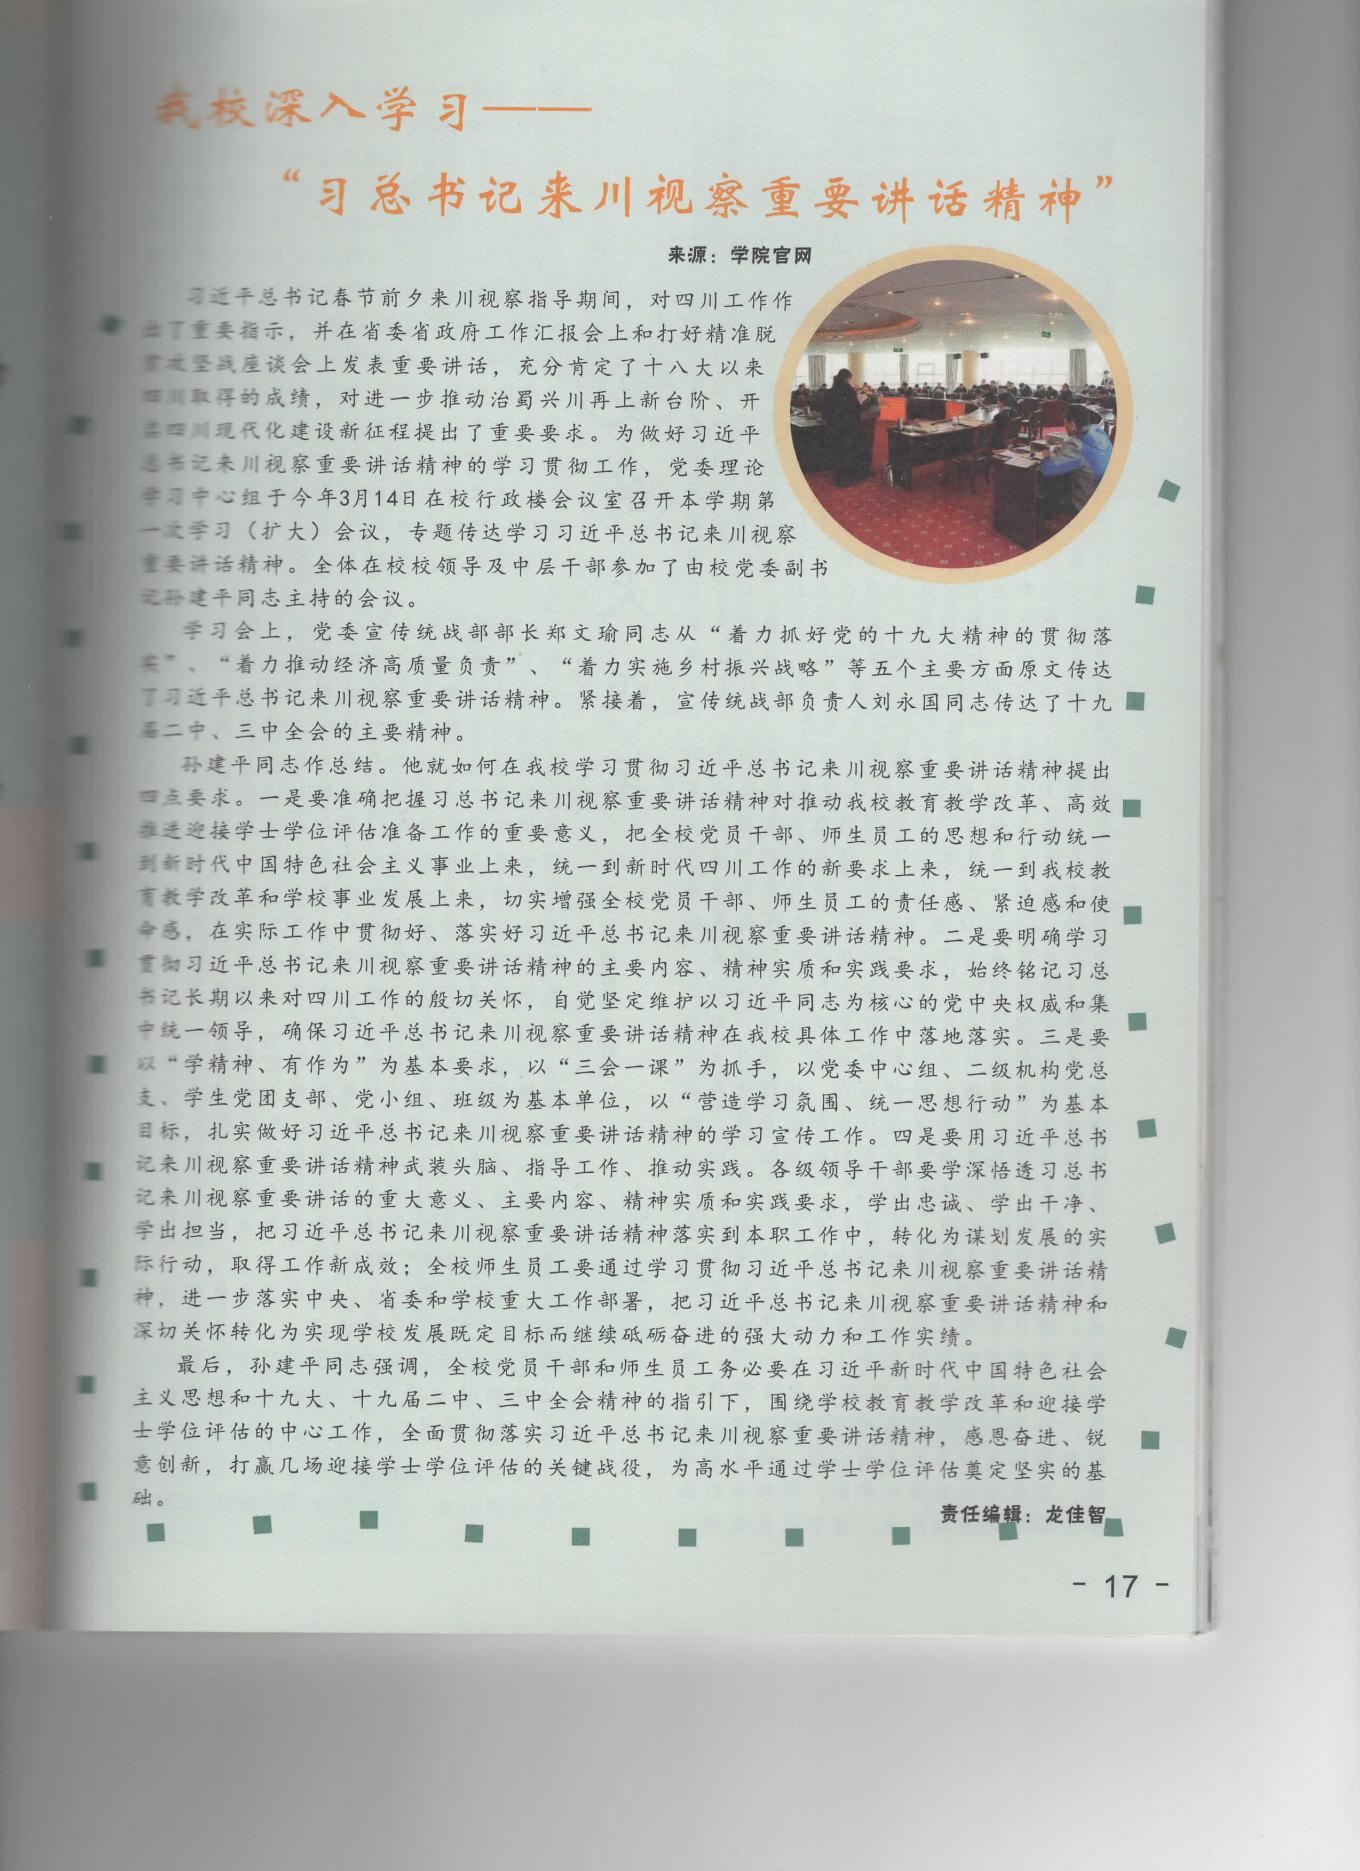 我校深入学习——
“习总书记来川视察重要讲话精神”
来源：学院官网
习近平总书记春节前夕来川视察指导期间，对四川工作作
出了重要指示，并在省委省政府工作汇报会上和打好精准脱
贫攻坚战座谈会上发表重要讲话，充分肯定了十八大以来
四川取得的成绩，对进一步推动治蜀兴川再上新台阶、开
启四川现代化建设新征程提出了重要要求。为做好习近平
总书记来川视察重要讲话精神的学习贯彻工作，党委理论
学习中心组于今年3月14日在校行政楼会议室召开本学期第
一次学习（扩大）会议，专题传达学习习近平总书记来川视察
重要讲话精神。全体在校校领导及中层干部参加了由校党委副书
记孙建平同志主持的会议。
学习会上，党委宣传统战部部长郑文瑜同志从“着力抓好党的十九大精神的贯彻落
实”、“着力推动经济高质量负责”、“着力实施乡村振兴战略”等五个主要方面原文传达
了习近平总书记来川视察重要讲话精神。紧接着，宣传统战部负责人刘永国同志传达了十九
届二中、三中全会的主要精神。
孙建平同志作总结。他就如何在我校学习贯彻习近平总书记来川视察重要讲话精神提出
四点要求。一是要准确把握习总书记来川视察重要讲话精神对推动我校教育教学改革、高效
推进迎接学士学位评估准备工作的重要意义，把全校党员干部、师生员工的思想和行动统一
到新时代中国特色社会主义事业上来，统一到新时代四川工作的新要求上来，统一到我校教
育教学改革和学校事业发展上来，切实增强全校党员干部、师生员工的责任感、紧迫感和使
命感，在实际工作中贯彻好、落实好习近平总书记来川视察重要讲话精神。二是要明确学习
贯彻习近平总书记来川视察重要讲话精神的主要内容、精神实质和实践要求，始终铭记习总
书记长期以来对四川工作的殷切关怀，自觉坚定维护以习近平同志为核心的党中央权威和集
中统一领导，确保习近平总书记来川视察重要讲话精神在我校具体工作中落地落实。三是要
以“学精神、有作为”为基本要求，以“三会一课”为抓手，以党委中心组、二级机构党总
支、学生党团支部、党小组、班级为基本单位，以“营造学习氛围、统一思想行动”为基本
目标，扎实做好习近平总书记来川视察重要讲话精神的学习宣传工作。四是要用习近平总书
记来川视察重要讲话精神武装头脑、指导工作、推动实践。各级领导干部要学深悟透习总书
记来川视察重要讲话的重大意义、主要内容、精神实质和实践要求，学出忠诚、学出干净、
学出担当，把习近平总书记来川视察重要讲话精神落实到本职工作中，转化为谋划发展的实
际行动，取得工作新成效；全校师生员工要通过学习贯彻习近平总书记来川视察重要讲话精
神，进一步落实中央、省委和学校重大工作部署，把习近平总书记来川视察重要讲话精神和
深切关怀转化为实现学校发展既定目标而继续砥砺奋进的强大动力和工作实绩。
最后，孙建平同志强调，全校党员干部和师生员工务必要在习近平新时代中国特色社会
主义思想和十九大、十九届二中、三中全会精神的指引下，围绕学校教育教学改革和迎接学
士学位评估的中心工作，全面贯彻落实习近平总书记来川视察重要讲话精神，感恩奋进、锐
意创新，打赢几场迎接学士学位评估的关键战役，为高水平通过学士学位评估奠定坚实的基
础。
责任编辑：龙佳智
- 17 -